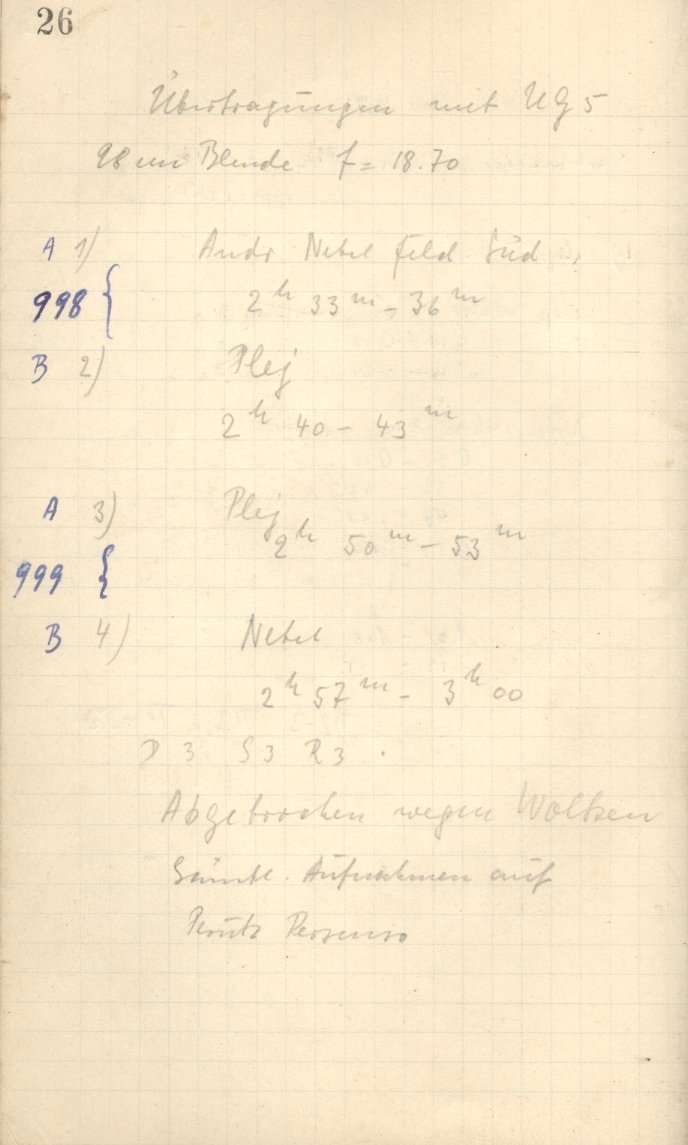 26
Übertragungen mit UG 5
98 cm Blende f = 18.70
A 1) Andr Nebel feld Süd,
998 { 2 h 33 m - 36 m
B 2) Plej
2 h 40 - 43 m
A 3) Plej
2 h 50 m - 53 m
999 {
B 4) Nebel
2 h 57 m - 3 h 00
D 3 S 3 R 3 .
Abgebrochen wegen Wolken
Sämtl. Aufnahmen auf
Perutz Persenso